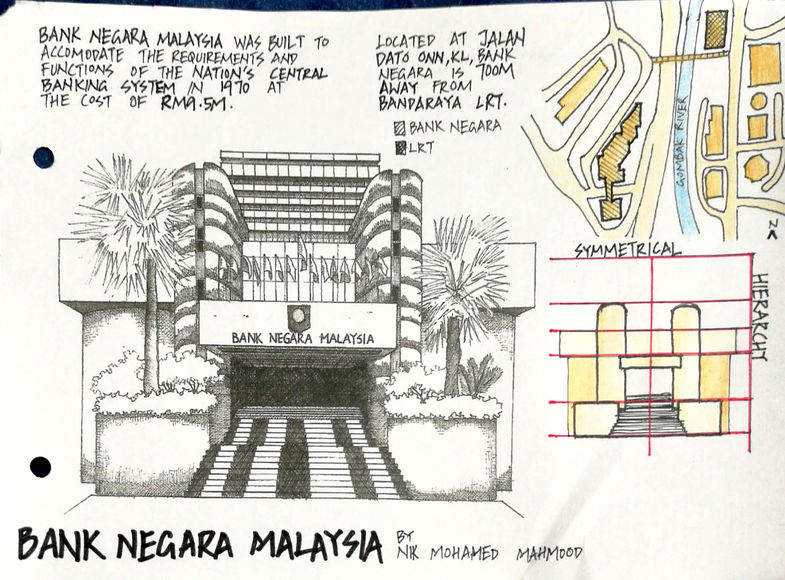 BANK NEGARA MALAYSIA WAS BUILT TO
ACCOMODATE THE REQUIREMENTS AND
FUNCTIONS OF THE NATION'S CENTRAL
BANKING SYSTEM IN 1970 AT
THE COST OF RM9.5M.
LOCATED AT JALAN
DATO ONN, KL, BANK
NEGARA IS 700M
AWAY FROM
BANDARAYA LRT.
BANK NEGARA
LRT
GOMBAK RIVER
N
SYMMETRICAL
HIERARCHY
BANK NEGARA MALAYSIA
BANK NEGARA MALAYSIA
BY
NIK MOHAMED MAHMOOD